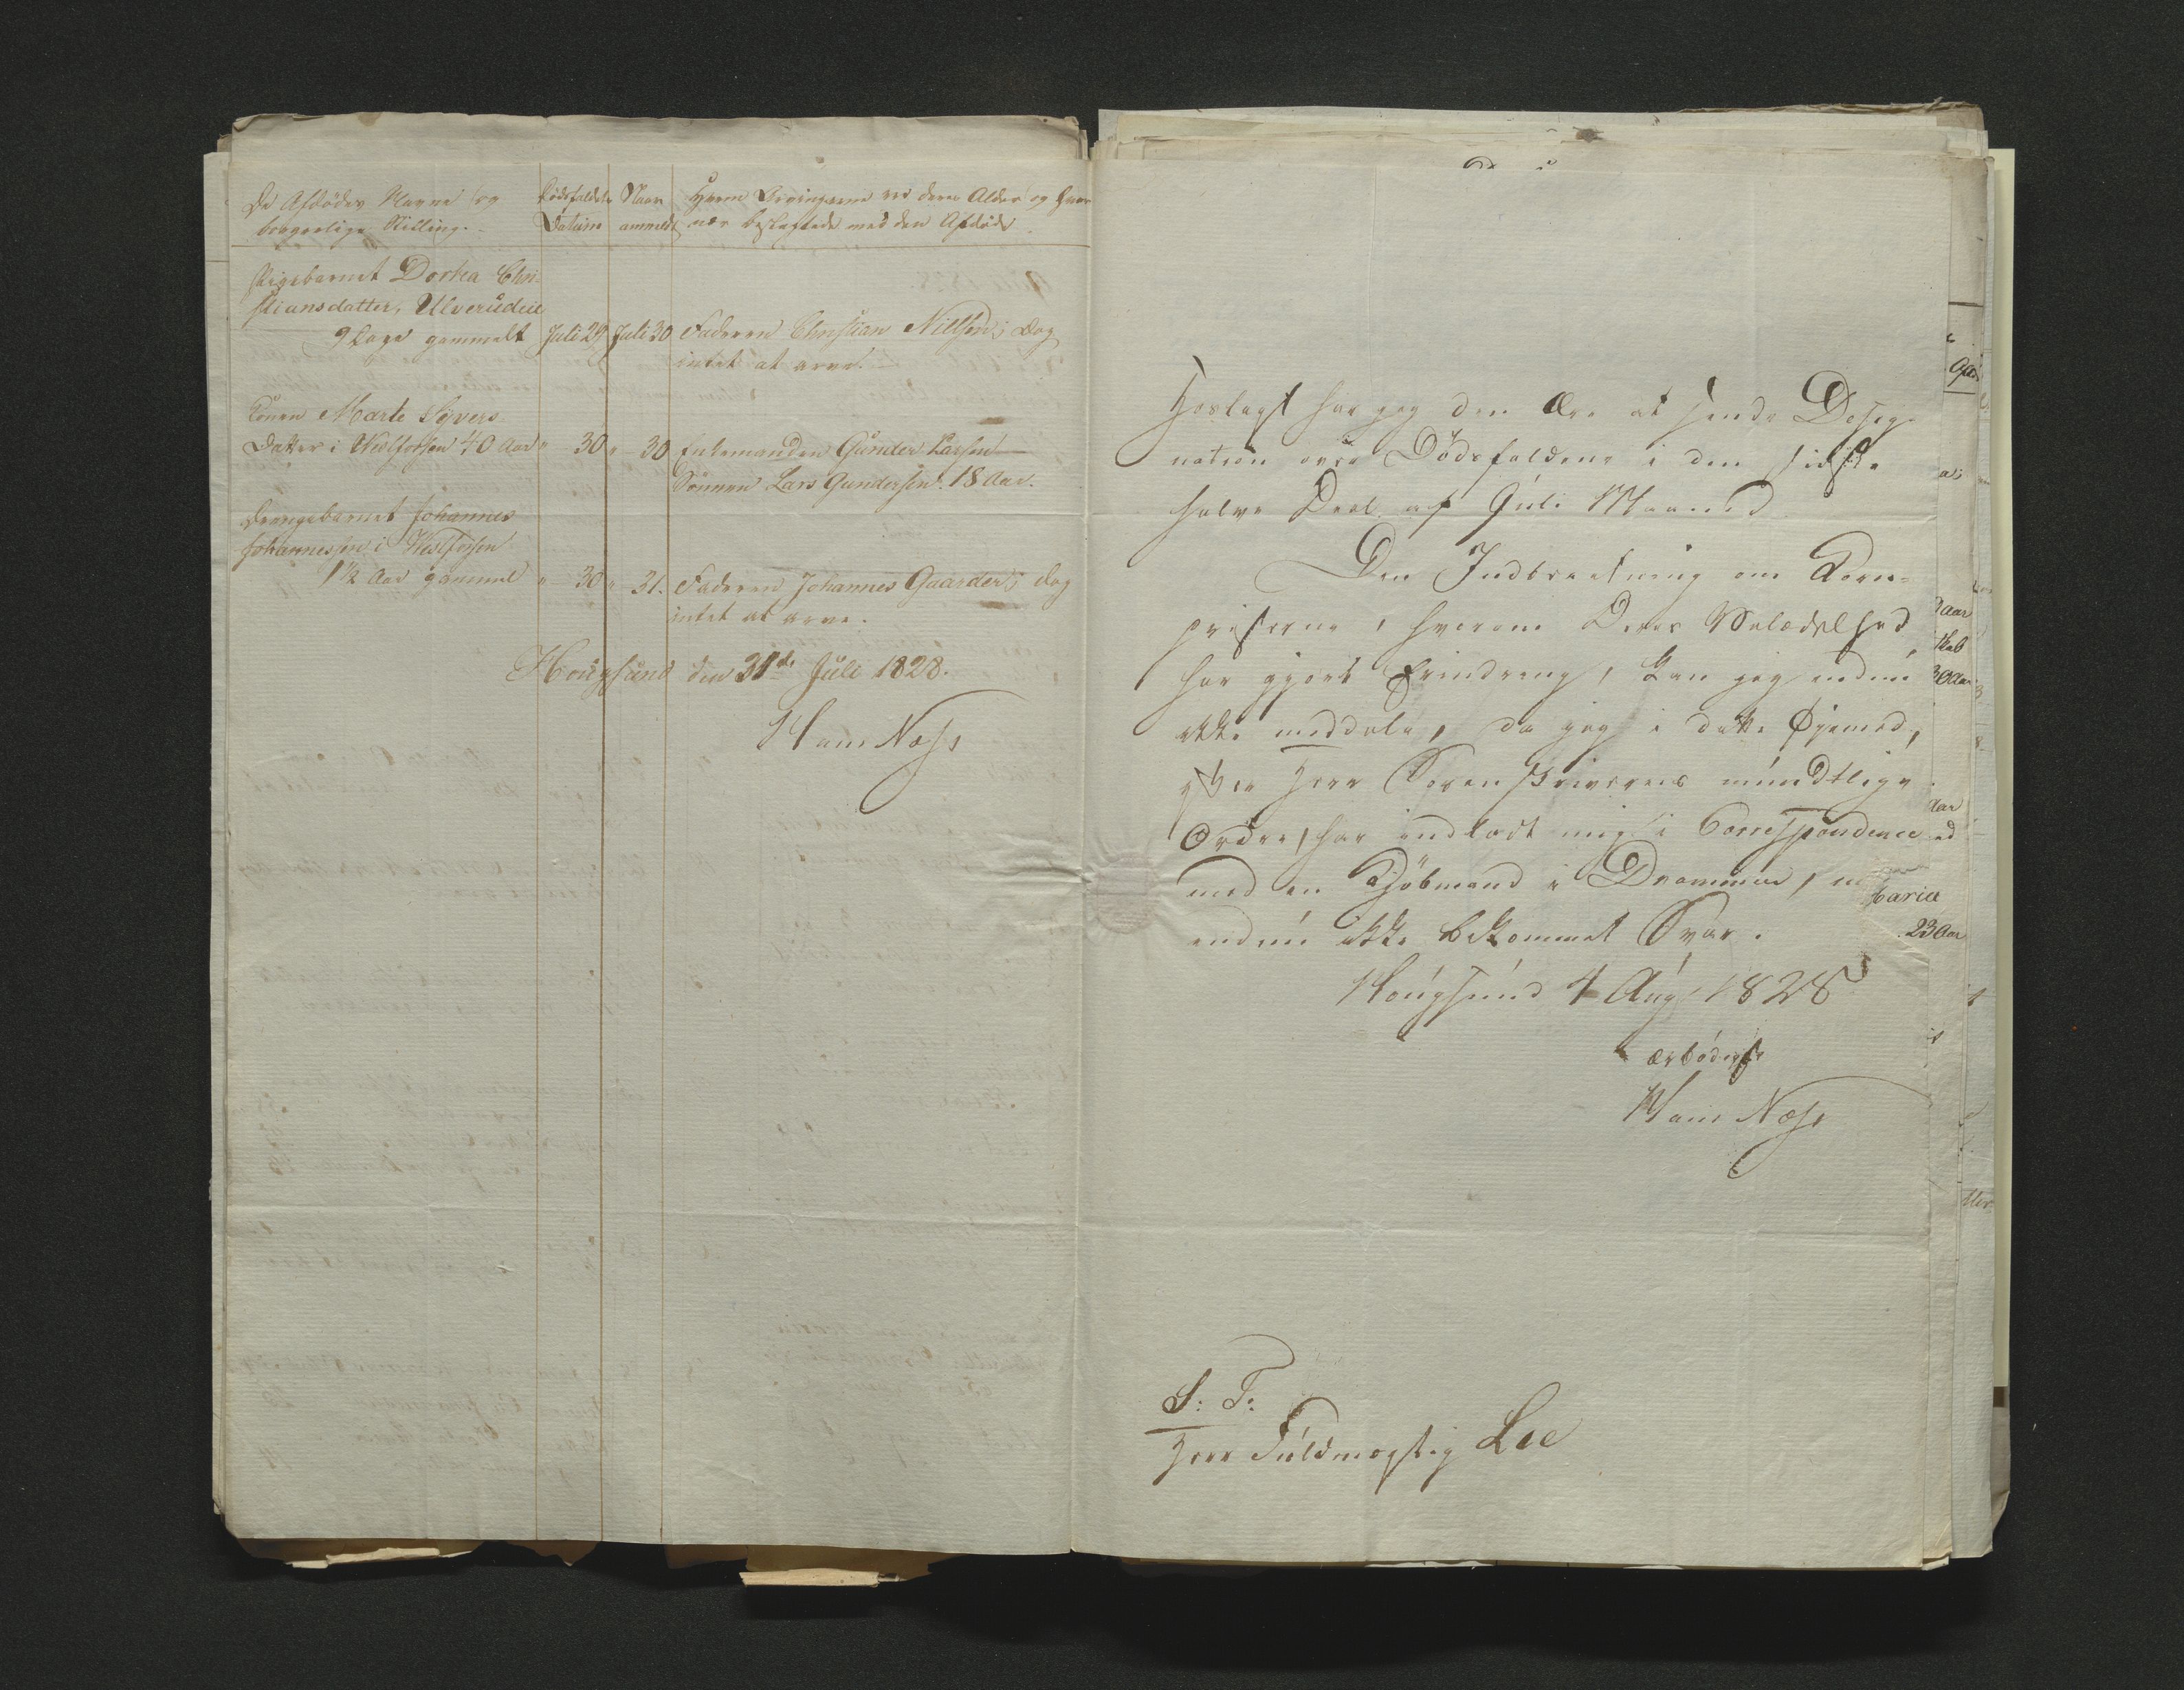 De Afdødes Navne og
borgerlige Stilling.
Dødsfaldets
Datum
Naar
anmeldt
Hvem Arvingerne ere deres Alder og hvor
nær beslægtede med den Afdøde.
Pigebarnet Dorthea Chri-
stiansdatter, Ulverudeie
9 Dage gammelt Juli 29 Juli 30 Faderen Christian Nielsen; dog
intet at arve.
Konen Marte Sÿvers
Datter i Vestfossen 40 Aar " 30 " 30 Enkemanden Gunder Larsen
Sönnen Lars Gundersen. 18 Aar.
Drengebarnet Johannes
Johannessen i Vestfossen
1½ Aar gammel " 30 " 31. Faderen Johannes Gaarder; dog
intet at arve.
Hougsund den 31te Juli 1828.
Hans Næss
Hoslagt har jeg den Ære at sende Desig-
nation over Dödsfaldene i den sidste
halve Deel af Juli Maaned
Den Indberetning om Korn-
priserne, hvorom Deres Velædelhed
har gjort Erindring, kan jeg endnu
ikke meddele, da jeg i dette Øjemed,
efter Herr Sorenskriverens mundtlige
Ordre, har indladt mig i Correspondence
med en Kjöbmand i Drammen,
endnu ikke bekommet Svar.
Hougsund 4 Aug 1828
ærbödigst
Hans Næss
S: T:
Herr Fuldmægtig Lee
Aar
30 Aar
Maria
23 Aar